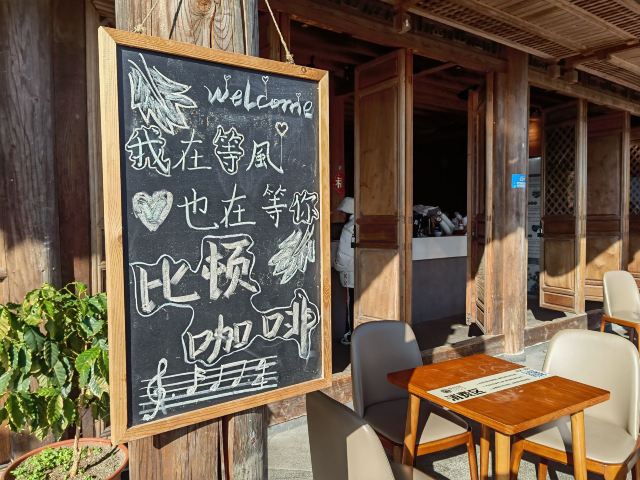 Welcome
我在等風
也在等你
比烦
咖啡
消费区